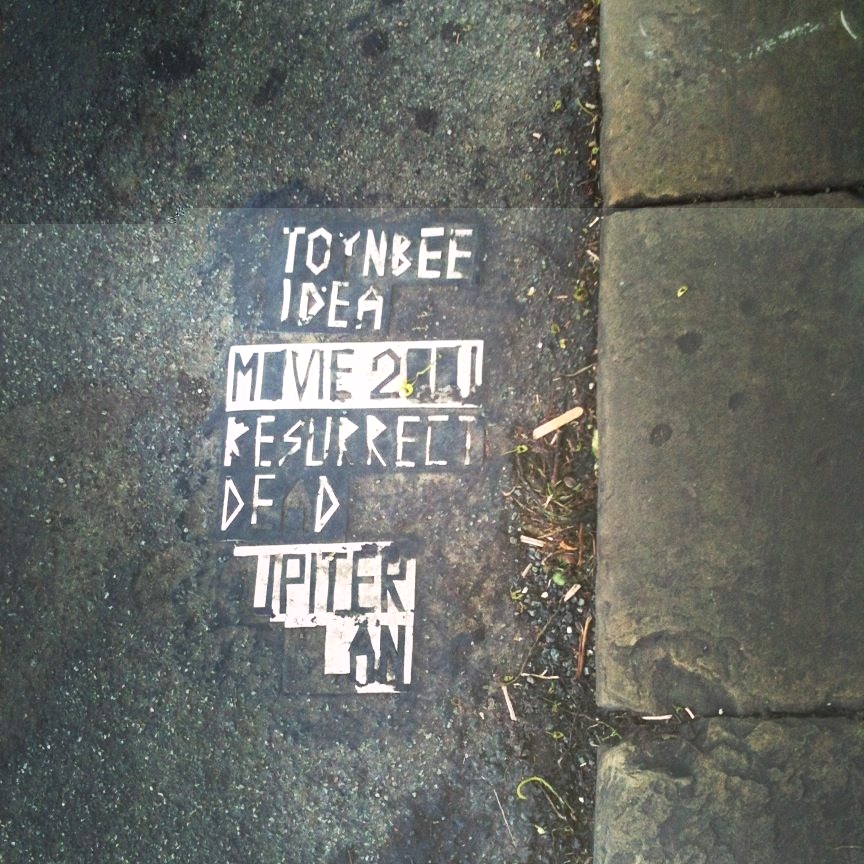 TOYNBEE
IDEA
MOVIE 2001
RESURRECT
DEAD
JUPITER